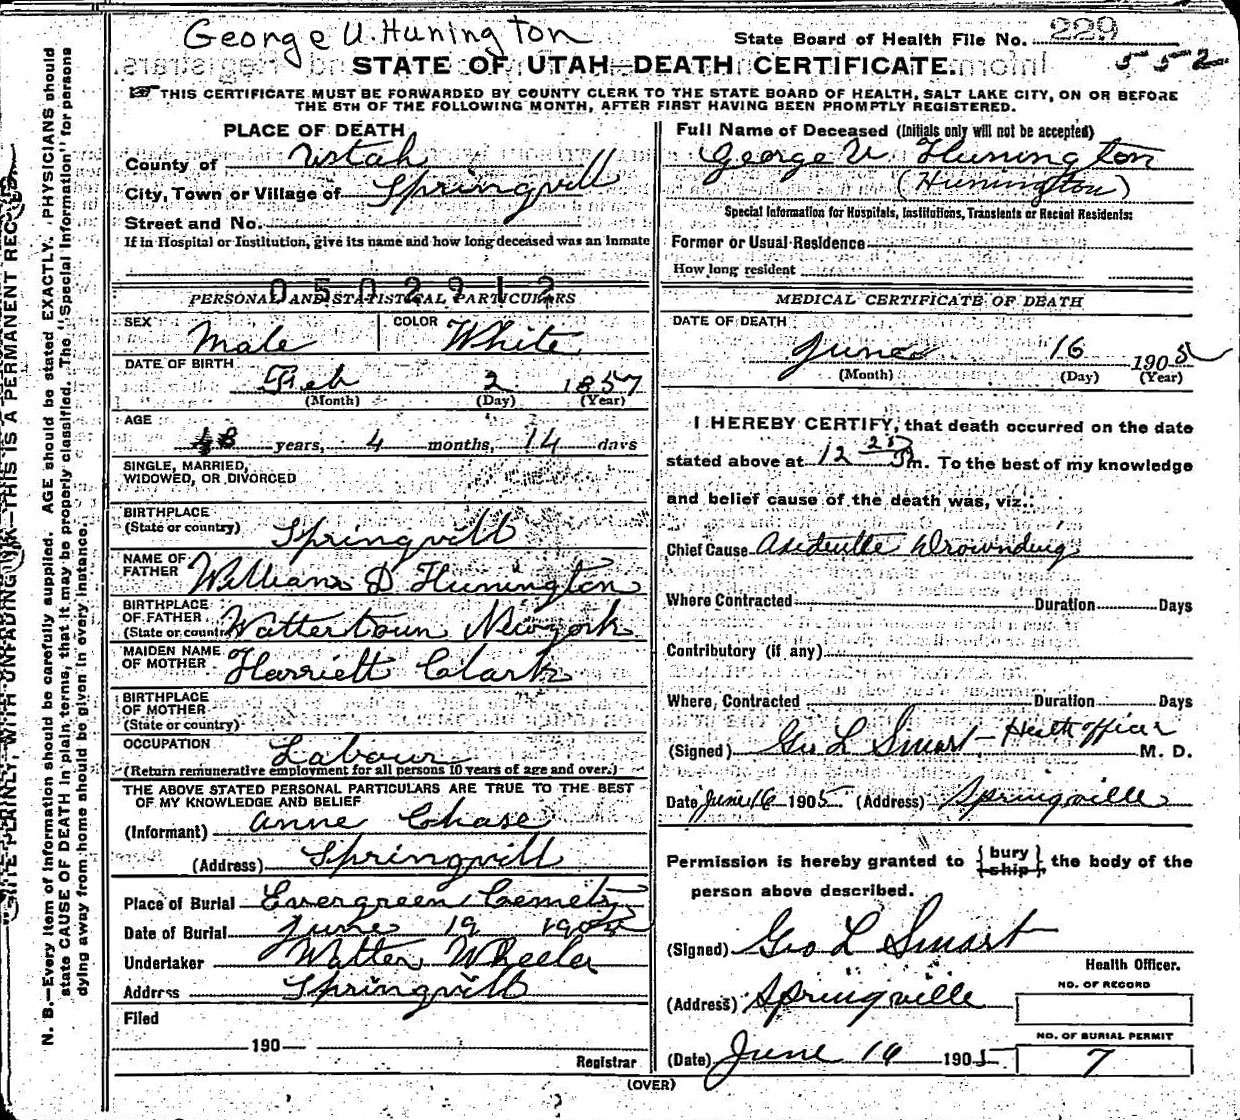 George U. Hunington
State Board of Health File No. 229
552
STATE OF UTAH—DEATH CERTIFICATE.
THIS CERTIFICATE MUST BE FORWARDED BY COUNTY CLERK TO THE STATE BOARD OF HEALTH, SALT LAKE CITY, ON OR BEFORE
THE 5TH OF THE FOLLOWING MONTH, AFTER FIRST HAVING BEEN PROMPTLY REGISTERED.
PLACE OF DEATH
County of Utah
City, Town or Village of Springvill
Street and No.
If in Hospital or Institution, give its name and how long deceased was an inmate
0502912
PERSONAL AND STATISTICAL PARTICULARS
SEX Male COLOR White
DATE OF BIRTH
Feb 2 1857
(Month) (Day) (Year)
AGE
48 years, 4 months, 14 days
SINGLE, MARRIED,
WIDOWED, OR DIVORCED
BIRTHPLACE
(State or country) Springvill
NAME OF
FATHER William D Hunington
BIRTHPLACE
OF FATHER
(State or country) Wattertoun Newyork
MAIDEN NAME
OF MOTHER Harriett Clark
BIRTHPLACE
OF MOTHER
(State or country)
OCCUPATION Labour
(Return remunerative employment for all persons 10 years of age and over.)
THE ABOVE STATED PERSONAL PARTICULARS ARE TRUE TO THE BEST
OF MY KNOWLEDGE AND BELIEF
(Informant) Anne Chase
(Address) Springvill
Place of Burial Evergreen Cemety
Date of Burial June 19 1905
Undertaker Walter Wheeler
Address Springvill
Filed
190
Registrar
Full Name of Deceased (Initials only will not be accepted)
George U Hunington
(Hunington)
Special Information for Hospitals, Institutions, Transients or Recent Residents:
Former or Usual Residence
How long resident
MEDICAL CERTIFICATE OF DEATH
DATE OF DEATH
June 16 1905
(Month) (Day) (Year)
I HEREBY CERTIFY, that death occurred on the date
stated above at 12 25 Pm. To the best of my knowledge
and belief cause of the death was, viz.:
Chief Cause Drownding
Where Contracted Duration Days
Contributory (if any)
Where Contracted Duration Days
(Signed) Geo L Smart - Health officer M. D.
Date June 16 1905 (Address) Springville
Permission is hereby granted to { bury ship } the body of the
person above described.
(Signed) Geo L Smart
Health Officer.
(Address) Springville
NO. OF RECORD
NO. OF BURIAL PERMIT
(Date) June 16 1905 7
(OVER)
WRITE PLAINLY, WITH UNFADING INK—THIS IS A PERMANENT RECORD
N. B.—Every item of information should be carefully supplied. AGE should be stated EXACTLY. PHYSICIANS should
state CAUSE OF DEATH in plain terms, that it may be properly classified. The "Special Information" for persons
dying away from home should be given in every instance.